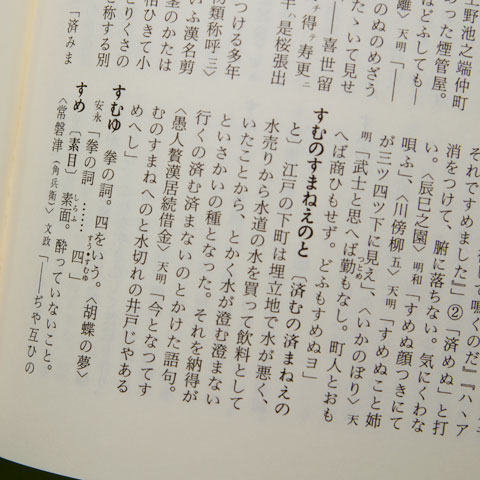 上野池之端仲町
あった煙管屋。
はどふしても―
離〉天明「――
のぬのめざう
たゝいて見せ
―― 喜世留
得テ寿更ニ
半ハ是桜張出
つける多年
物類称呼三〉
いふ漢名剪
相ひきて小
茎のかたは
とりくさの
と称する別
「済みま
して鳴くのだ』『ハヽア
それですめました』②「済めぬ」と打
消をつけて、腑に落ちない。気にくわな
い。〈辰巳之園〉明和「すめぬ顔つきにて
唄ふ」、〈川傍柳五〉天明「すめぬこと姉
が三ツ四ツ下に見え」、〈いかのぼり〉天
明「武士と思へば勤もなし。町人とおも
へば商ひもせず。どふもすめぬヨ」
すむのすまねえのと〔済むの済まねえの
と〕江戸の下町は埋立地で水が悪く、
水売りから水道の水を買って飲料として
いたことから、とかく水が澄む澄まない
といさかいの種となった。それを納得が
行くの済む済まないのとかけた語句。
〈愚人贅漢居続借金〉天明「今となつてす
むのすまねへのと水切れの井戸じやある
めへし」
すむゆ 拳の詞。四をいう。〈胡蝶の夢〉
安永「拳の詞……すう・すむゆ四」
すめ〔素目〕素面。酔っていないこと。
〈常磐津(角兵衛)〉文政「――ぢや互ひの